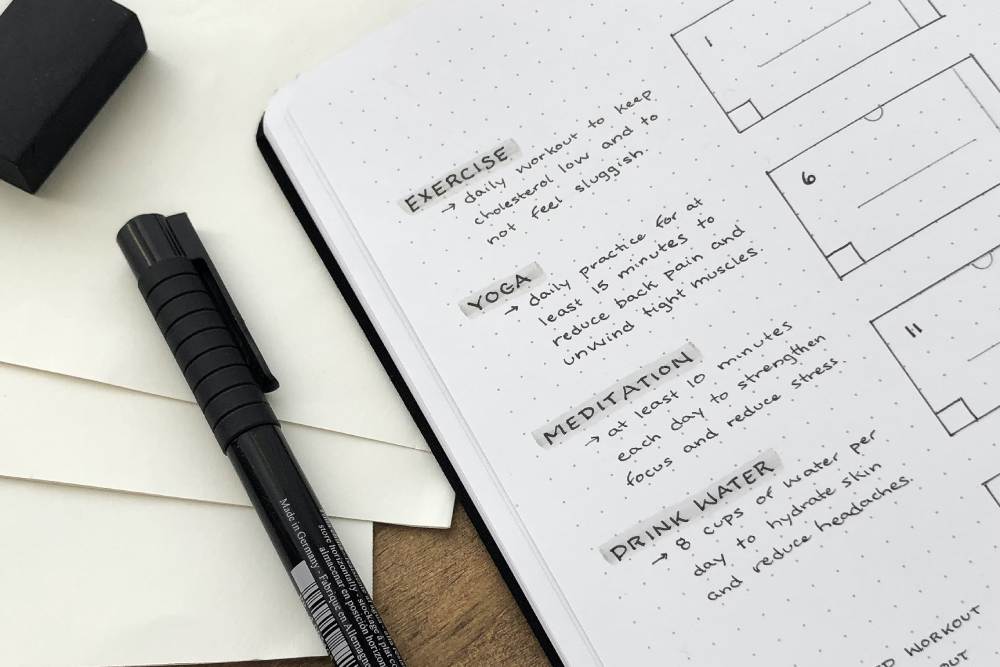 EXERCISE
→ daily workout to keep
cholesterol low and to
not feel sluggish.
YOGA
→ daily practice for at
least 15 minutes to
reduce back pain and
unwind tight muscles.
MEDITATION
→ at least 10 minutes
each day to strengthen
focus and reduce stress.
DRINK WATER
→ 8 cups of water per
day to hydrate skin
and reduce headaches.
WORKOUT
1
6
11
Made in Germany - Fabriqué en Allemagne
store horizontally - stockage à
almacenar en posición horizontal